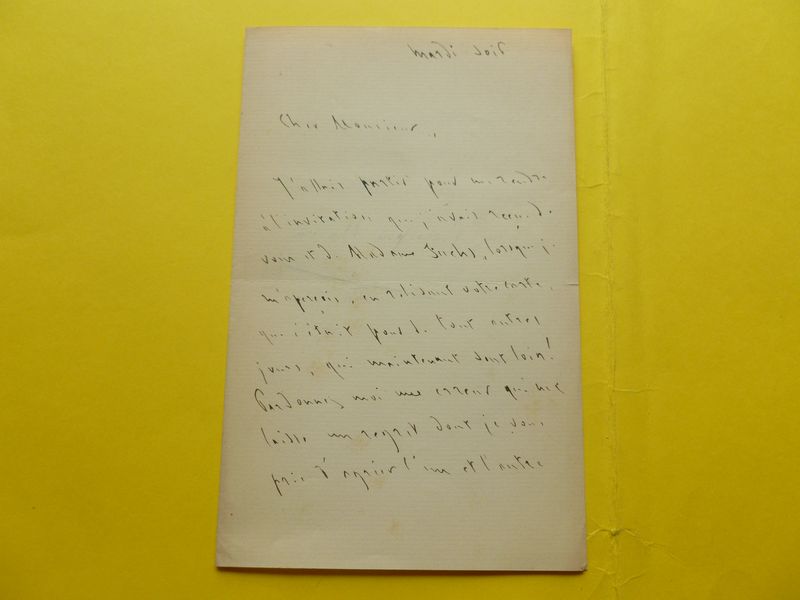 mardi soir
Cher Monsieur,
J'allais partir pour me rendre
à l'invitation que j'avais reçue de
vous et de Madame Fuchs, lorsque je
m'aperçois, en relisant votre carte,
que c'était pour de tout autres
jours, qui maintenant sont loin!
Pardonnez moi une erreur qui me
laisse un regret dont je vous
prie d'agréer l'un et l'autre